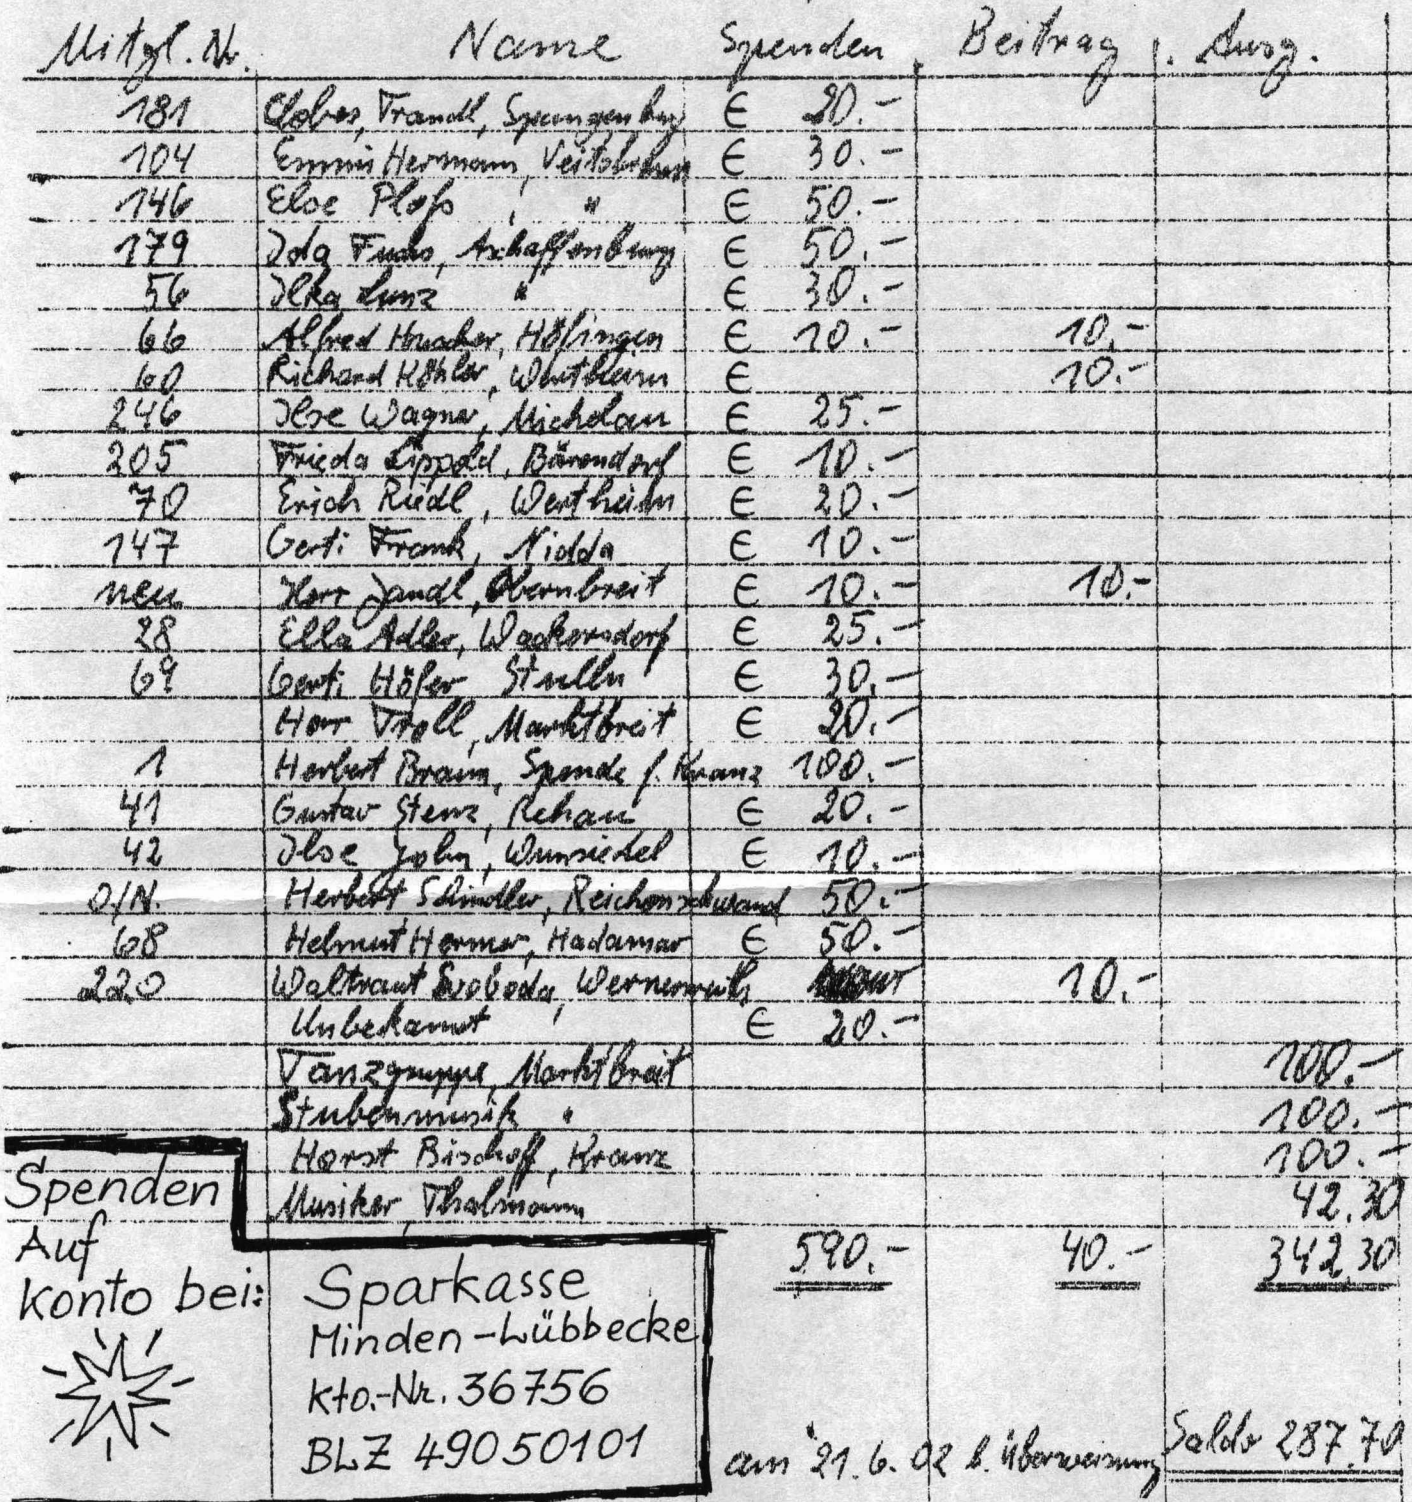 Mitgl. Nr. Name Spenden Beitrag Ausg.
181 Clobes, Trandl, Spangenberg € 20.-
104 Emmi Hermann, Veitsbronn € 30.-
146 Else Ploß, " € 50.-
179 Ida Fuchs, Aschaffenburg € 50.-
56 Ilka Lunz " € 30.-
66 Alfred Huscher, Höfingen € 10.- 10.-
60 Richard Köhler, Wertheim € 10.-
246 Ilse Wagner, Michelau € 25.-
205 Frieda Lippold, Bärendorf € 10.-
70 Erich Riedl, Wertheim € 20.-
147 Gerti Frank, Nidda € 10.-
neu Herr Jandl, Obernbreit € 10.- 10.-
28 Ella Adler, Wackersdorf € 25.-
69 Gerti Höfer, Stulln € 30.-
Herr Troll, Marktbreit € 20.-
1 Herbert Braun, Spende f. Kranz 100.-
41 Gustav Stenz, Rehau € 20.-
42 Ilse John, Wunsiedel € 10.-
O/N. Herbert Schindler, Reichenschwand 50.-
68 Helmut Hermer, Hadamar € 50.-
220 Waltraut Svoboda, 10.-
Unbekannt € 20.-
Tanzgruppe, Marktbreit 100.-
Stubenmusik " 100.-
Horst Bischoff, Kranz 100.-
Musiker, Thalmann 42.30
590.- 40.- 342.30
Spenden
Auf
Konto bei:
Sparkasse
Minden-Lübbecke
Kto.-Nr. 36756
BLZ 49050101
am 21.6.02 b. Überweisung Saldo 287.70